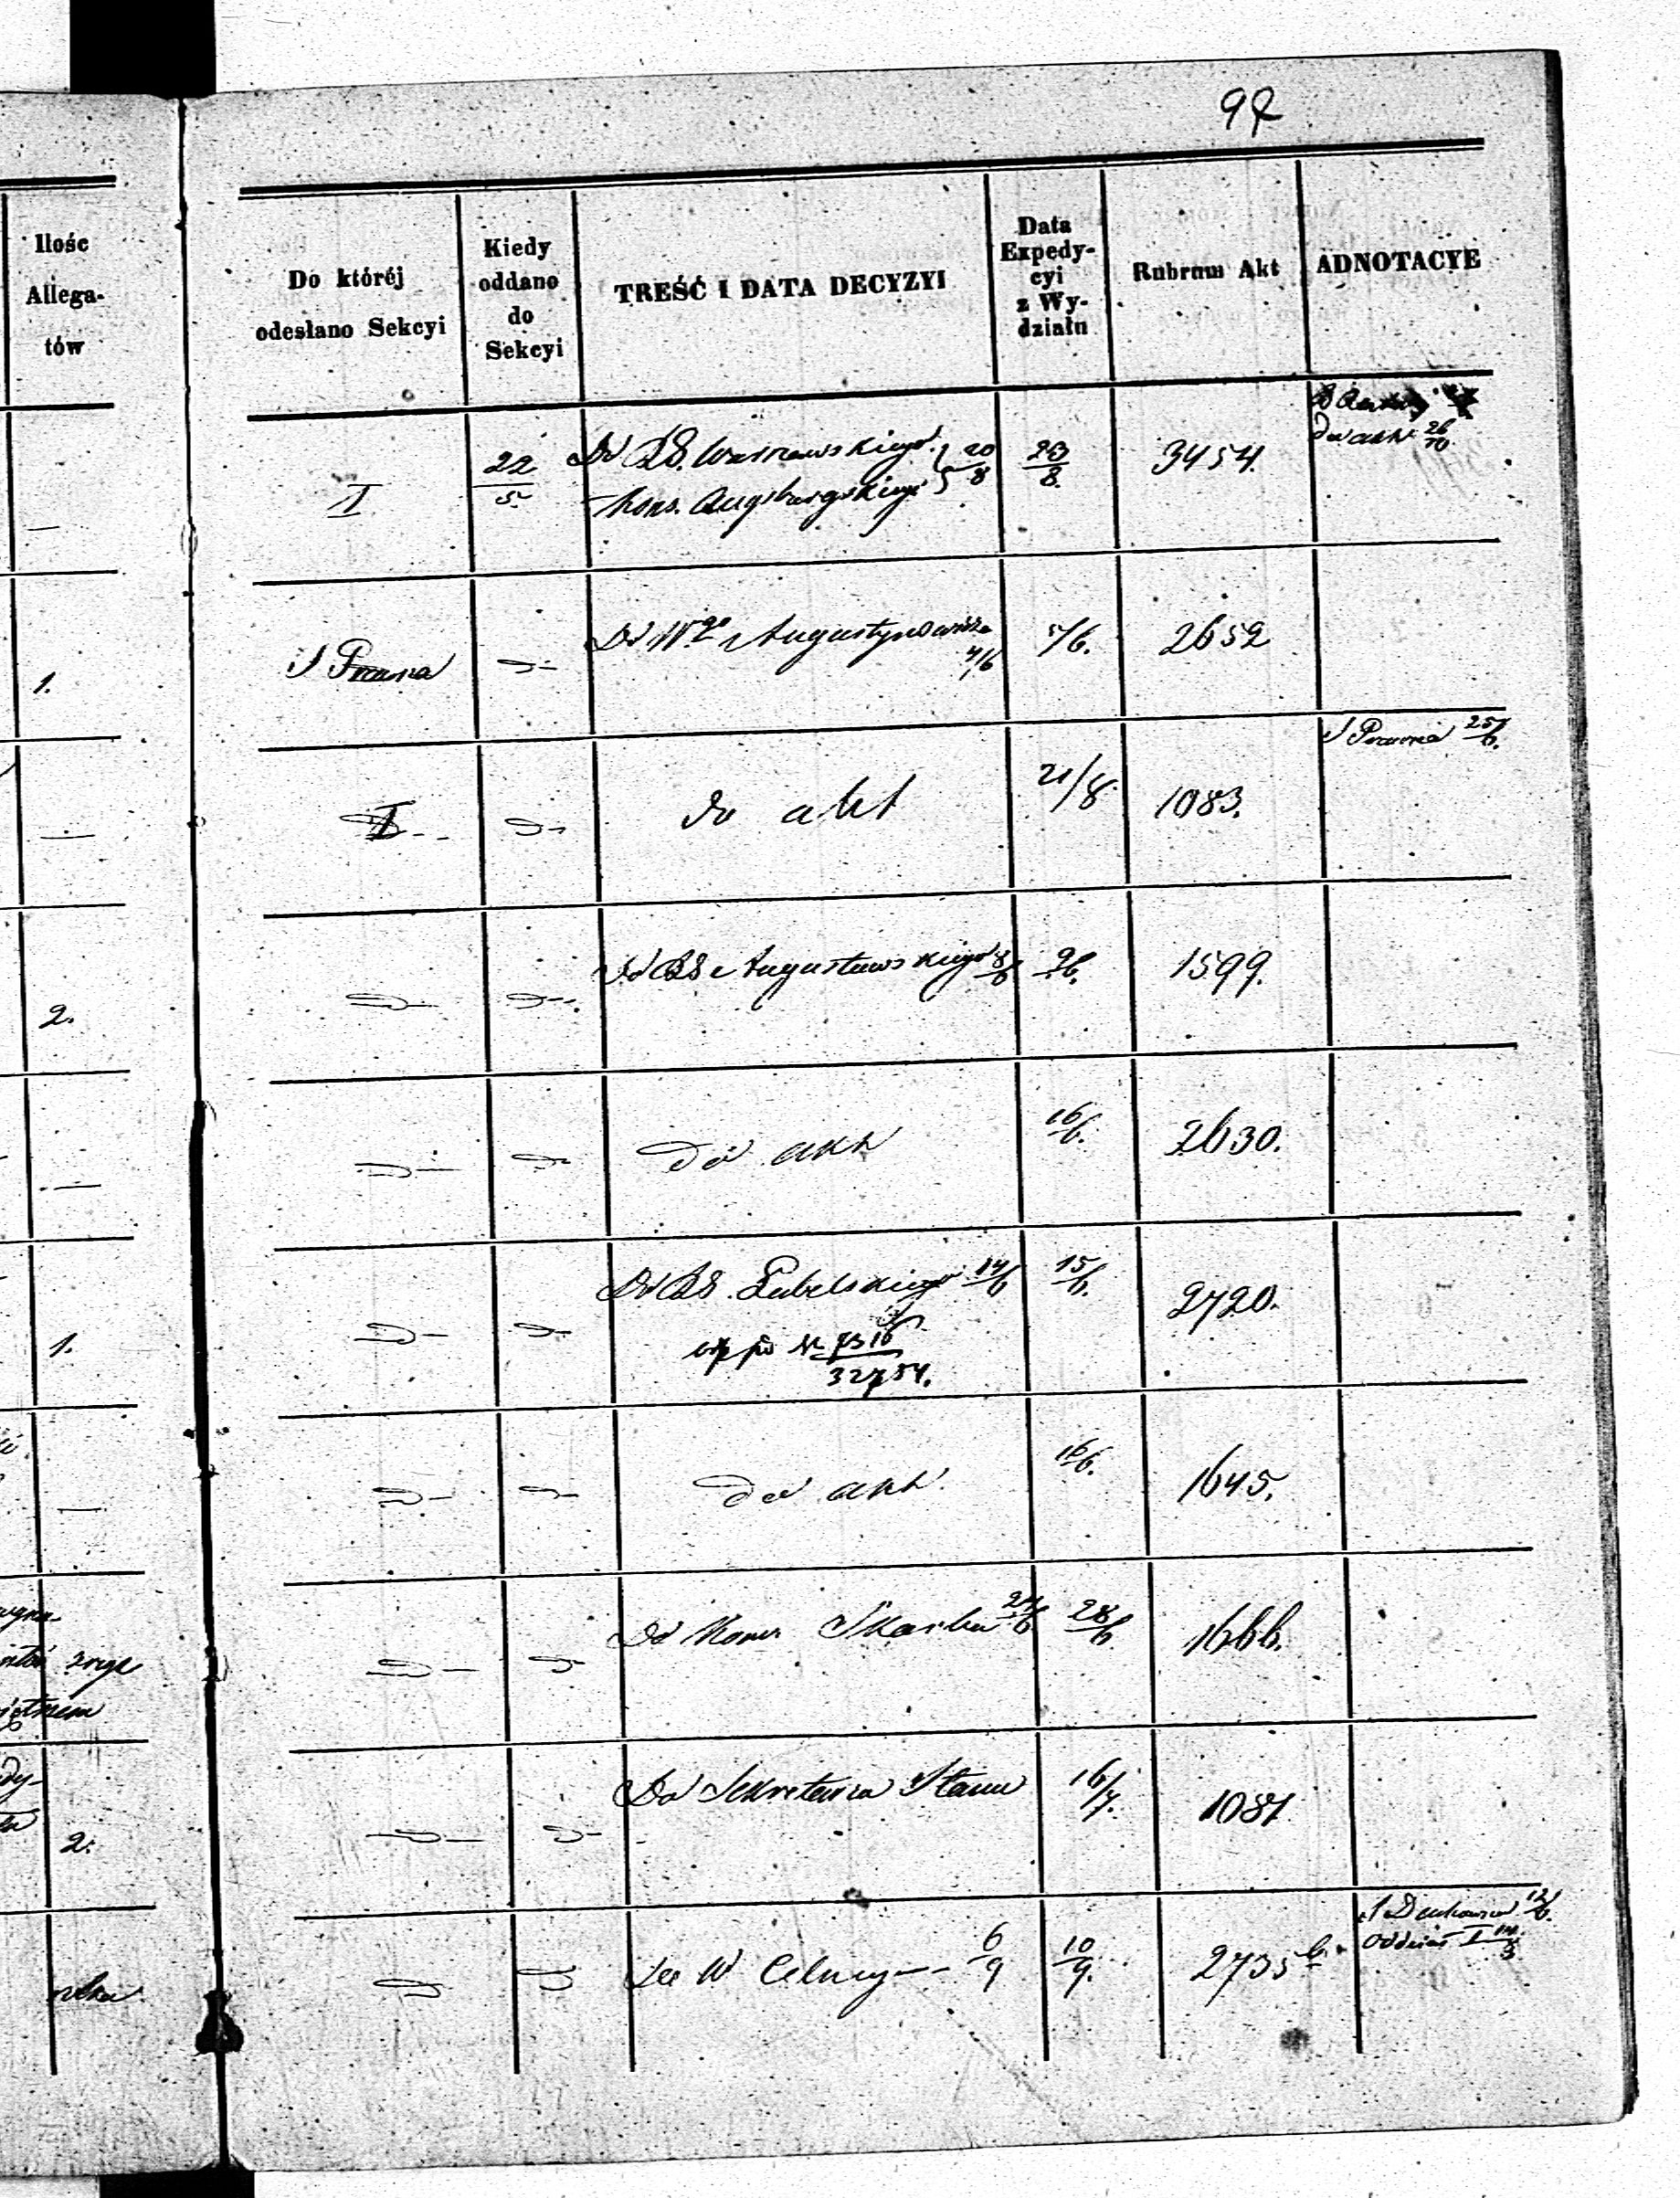 97
Ilośc
Allega-
tów
Do któréj
odesłano Sekcyi
Kiedy
oddano
do
Sekcyi
TREŚĆ I DATA DECYZYI
Data
Expedy-
cyi
z Wy-
działu
Rubrum Akt
ADNOTACYE
—
I
22/5
Do RG. Warszawskiego
Kons. Augsburgskiego
20/8
23/8
3454.
do akt 26/10
1.
S Prawna
D—
Do Wgo Augustynowicza
4/6
5/6.
2652
—
I
D—
do akt
21/8
1083.
S Prawna 25/6.
2.
D—
D—
Do RG Augustowskiego 8/6
9/6.
1599.
—
D—
D—
do akt
16/6.
2630.
1.
D—
D—
Do RG. Lubelskiego 14/6
15/6.
2720.
32754.
—
D—
D—
do akt
16/6.
1645.
D—
D—
Do Kom Skarbu 27/6
28/6
1666.
2.
D—
D—
Do Sekretarza Stanu
16/7.
1081
D
D
De W Celny — 6/9
10/9.
2735 b.
12/6.
Oddział I